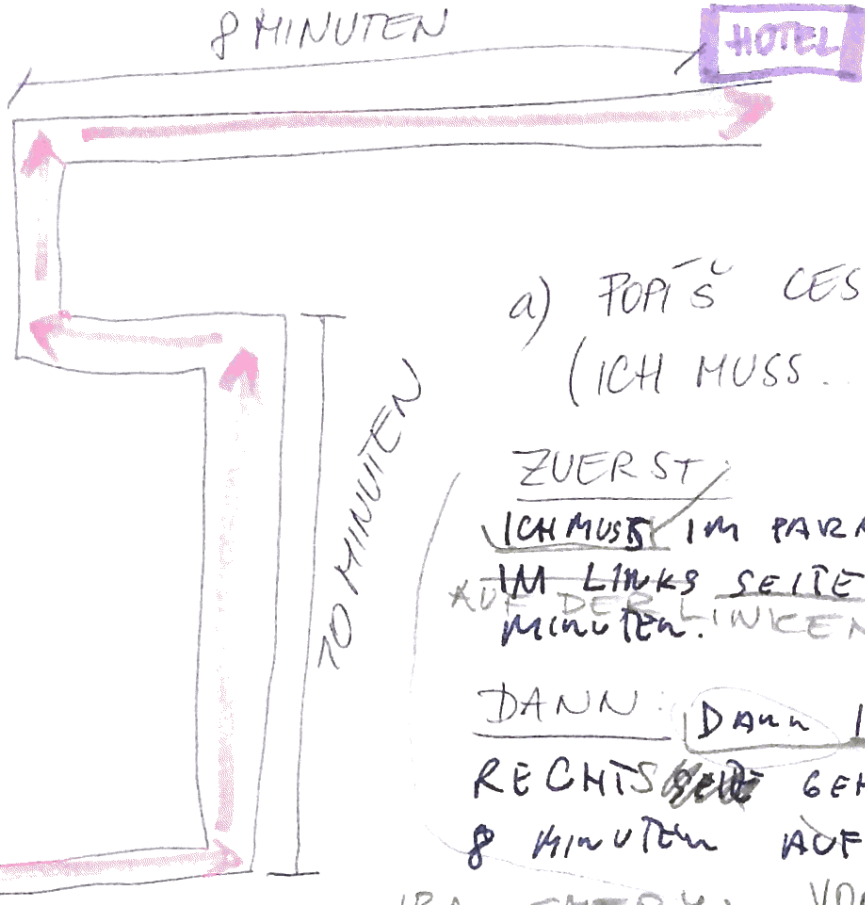 8 MINUTEN
HOTEL
10 MINUTEN
a) POPÍŠ CES
(ICH MUSS..
ZUERST:
ICH MUSS IM PARK
IM LINKS SEITE
AUF DER LINKEN
MINUTEN.
DANN: DANN I
RECHTS GEH
8 MINUTEN AUF